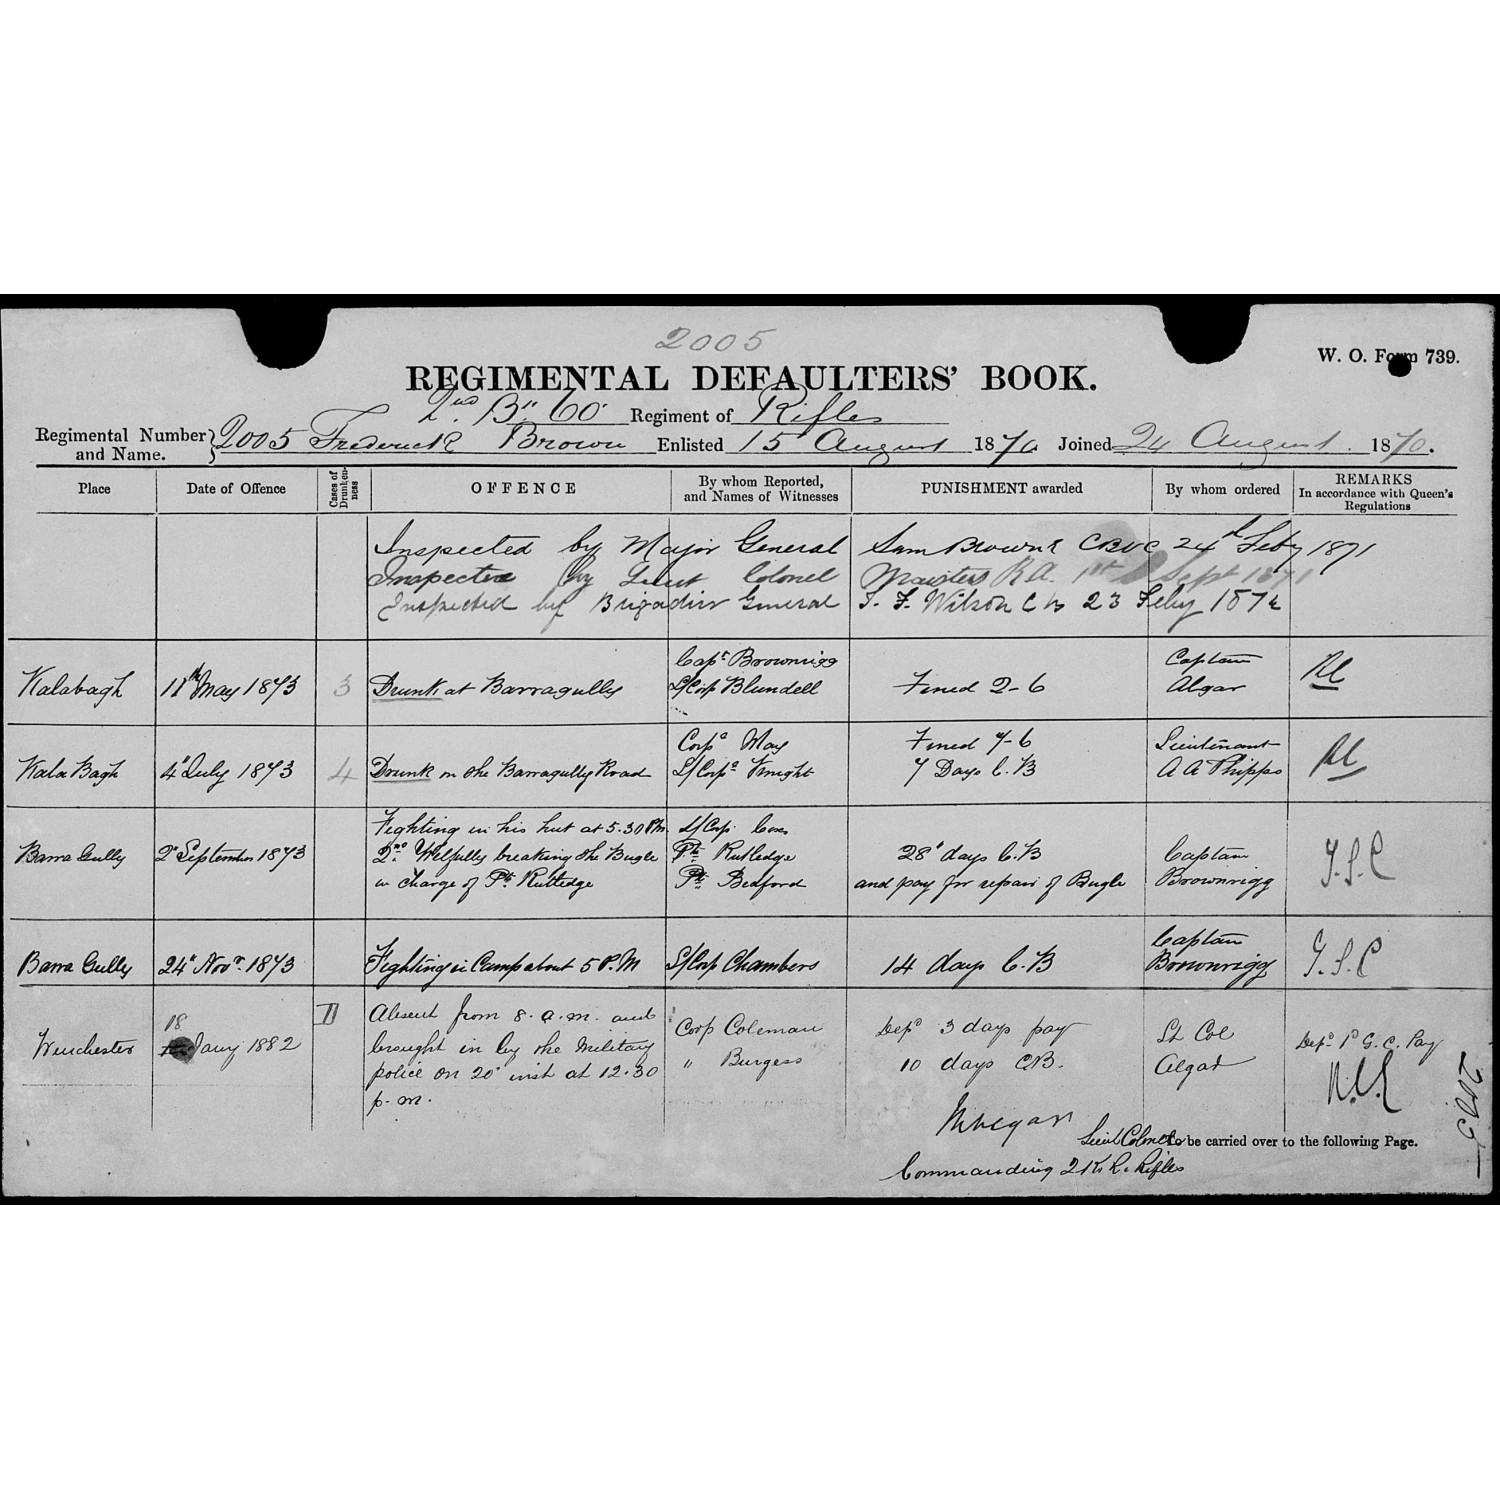 2005
W. O. Form 739.
REGIMENTAL DEFAULTERS' BOOK.
2nd Bn 60 Regiment of Rifles
Regimental Number and Name. } 2005 Frederick Brown Enlisted 15 August 1870 Joined 24 August 1870.
Place Date of Offence Cases of Drunkenness OFFENCE By whom Reported, and Names of Witnesses PUNISHMENT awarded By whom ordered REMARKS In accordance with Queen's Regulations
Inspected by Major General Sam Browne CB VC 24th Feby 1871
Inspected by Lieut Colonel R A. 1st Sept 1871
Inspected by Brigadier General T. F. Wilson Cb 23 Feby 1872
Capt Brownrigg Captain
Kalabagh 11th May 1873 3 Drunk at Barragully L/Corp Blundell Fined 2-6 Algar
Corpl May Fined 7-6 Lieutenant
Kala Bagh 4th July 1873 4 Drunk on the Barragully Road L/Corpl Knight 7 Days C.B A A Phipps
Fighting in his hut at 5.30 PM. L/Corp. Cox
Barra Gully 2d September 1873 2nd Wilfully breaking the Bugle Pte Rutledge 28 days C.B Captain
in charge of Pte Rutledge Pte Bedford and pay for repair of Bugle Brownrigg
Captain
Barra Gully 24th Novr. 1873 Fighting in Camp about 5 P.M L/Corp Chambers 14 days C.B Brownrigg
18 D Absent from 8. a.m. and Corp Coleman Depd 3 days pay Lt Col
Winchester Jany 1882 brought in by the Military " Burgess 10 days CB. Algar Depd 1d G. C. Pay
police on 20 inst at 12.30
p.m.
Lieut Colonel To be carried over to the following Page.
Commanding 2 K. R. Rifles
2005